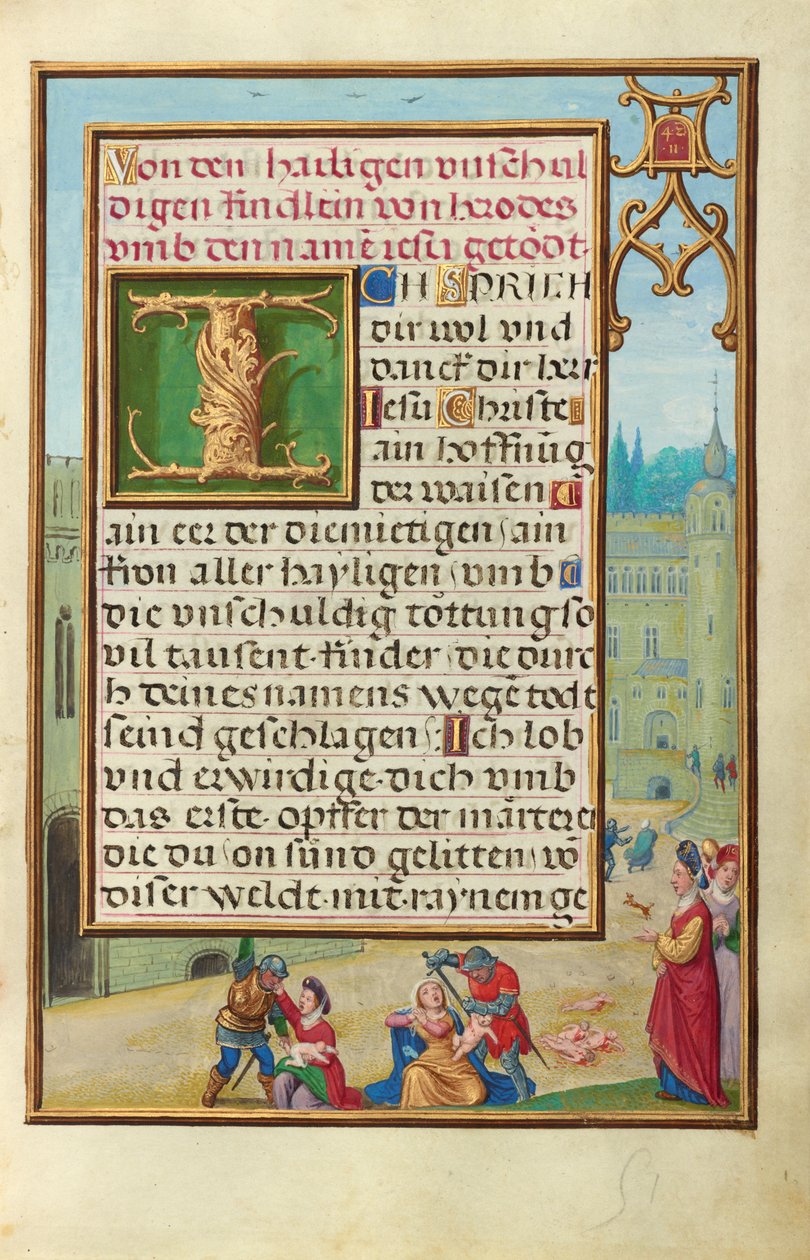 42
·II·
Von den hailigen vnschul
digen kindlein von herodes
vmb den namē iesu getödt·
ICH SPRICH
dir wol vnd
danck dir herr
Iesu Christe
ain hoffnūg
der waisen
ain eer der diemietigen, ain
kron aller hayligen, vmb
die vnschuldig tōttung so
vil tausent· kinder, die durc
h deines namens wegē todt
seind geschlagen: Ich lob
vnd erwirdige·dich vmb
das erste· opffer der mārterer
die du on sūnd gelitten, vō
diser weldt·mit·raynem ge
51